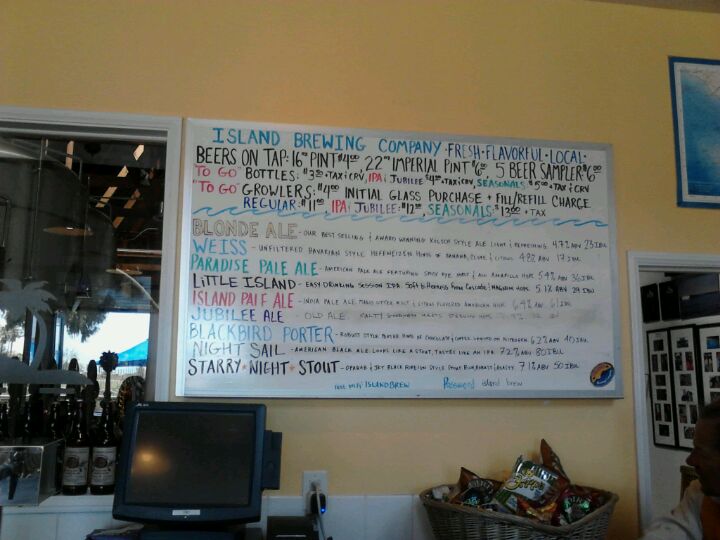 ISLAND BREWING COMPANY · FRESH · FLAVORFUL · LOCAL ·
BEERS ON TAP: 16oz PINT $4.00 22oz IMPERIAL PINT $6.00 5 BEER SAMPLER $6.00
"TO GO" BOTTLES: + TAX & CRV, IPA & JUBILEE + TAX & CRV, SEASONALS $5.00 + TAX & CRV
"TO GO" GROWLERS: $4.00 INITIAL GLASS PURCHASE + FILL/REFILL CHARGE
REGULAR: $11.00 IPA & JUBILEE: $12.00, SEASONALS: $13.00 + TAX
BLONDE ALE - OUR BEST SELLING & AWARD WINNING KOLSCH STYLE ALE LIGHT & REFRESHING 4.7% ABV 23 IBU
WEISS - UNFILTERED BAVARIAN STYLE HEFEWEIZEN HINTS OF BANANA, CLOVE & CITRUS 4.9% ABV 17 IBU
PARADISE PALE ALE - AMERICAN PALE ALE FEATURING RYE, & ALL AMARILLO HOPS 5.4% ABV 36 IBU
LITTLE ISLAND - EASY DRINKING SESSION IPA. FROM CASCADE & HOPS 5.1% ABV 29 IBU
ISLAND PALE ALE - INDIA PALE ALE & CITRUS FLAVORED AMERICAN HOPS 6.4% ABV 61 IBU
JUBILEE ALE - OLD ALE MEETS
BLACKBIRD PORTER - ROBUST STYLE PORTER HINTS OF CHOCOLATE & COFFEE ON NITROGEN 6.2% ABV 40 IBU
NIGHT SAIL - AMERICAN BLACK ALE LOOKS LIKE A STOUT TASTES LIKE AN IPA 7.2% ABV 80 IBU
STARRY · NIGHT · STOUT - OPAQUE & JET BLACK FOREIGN STYLE STOUT & ROASTY 7.1% ABV 50 IBU
ISLANDBREW Password island brew